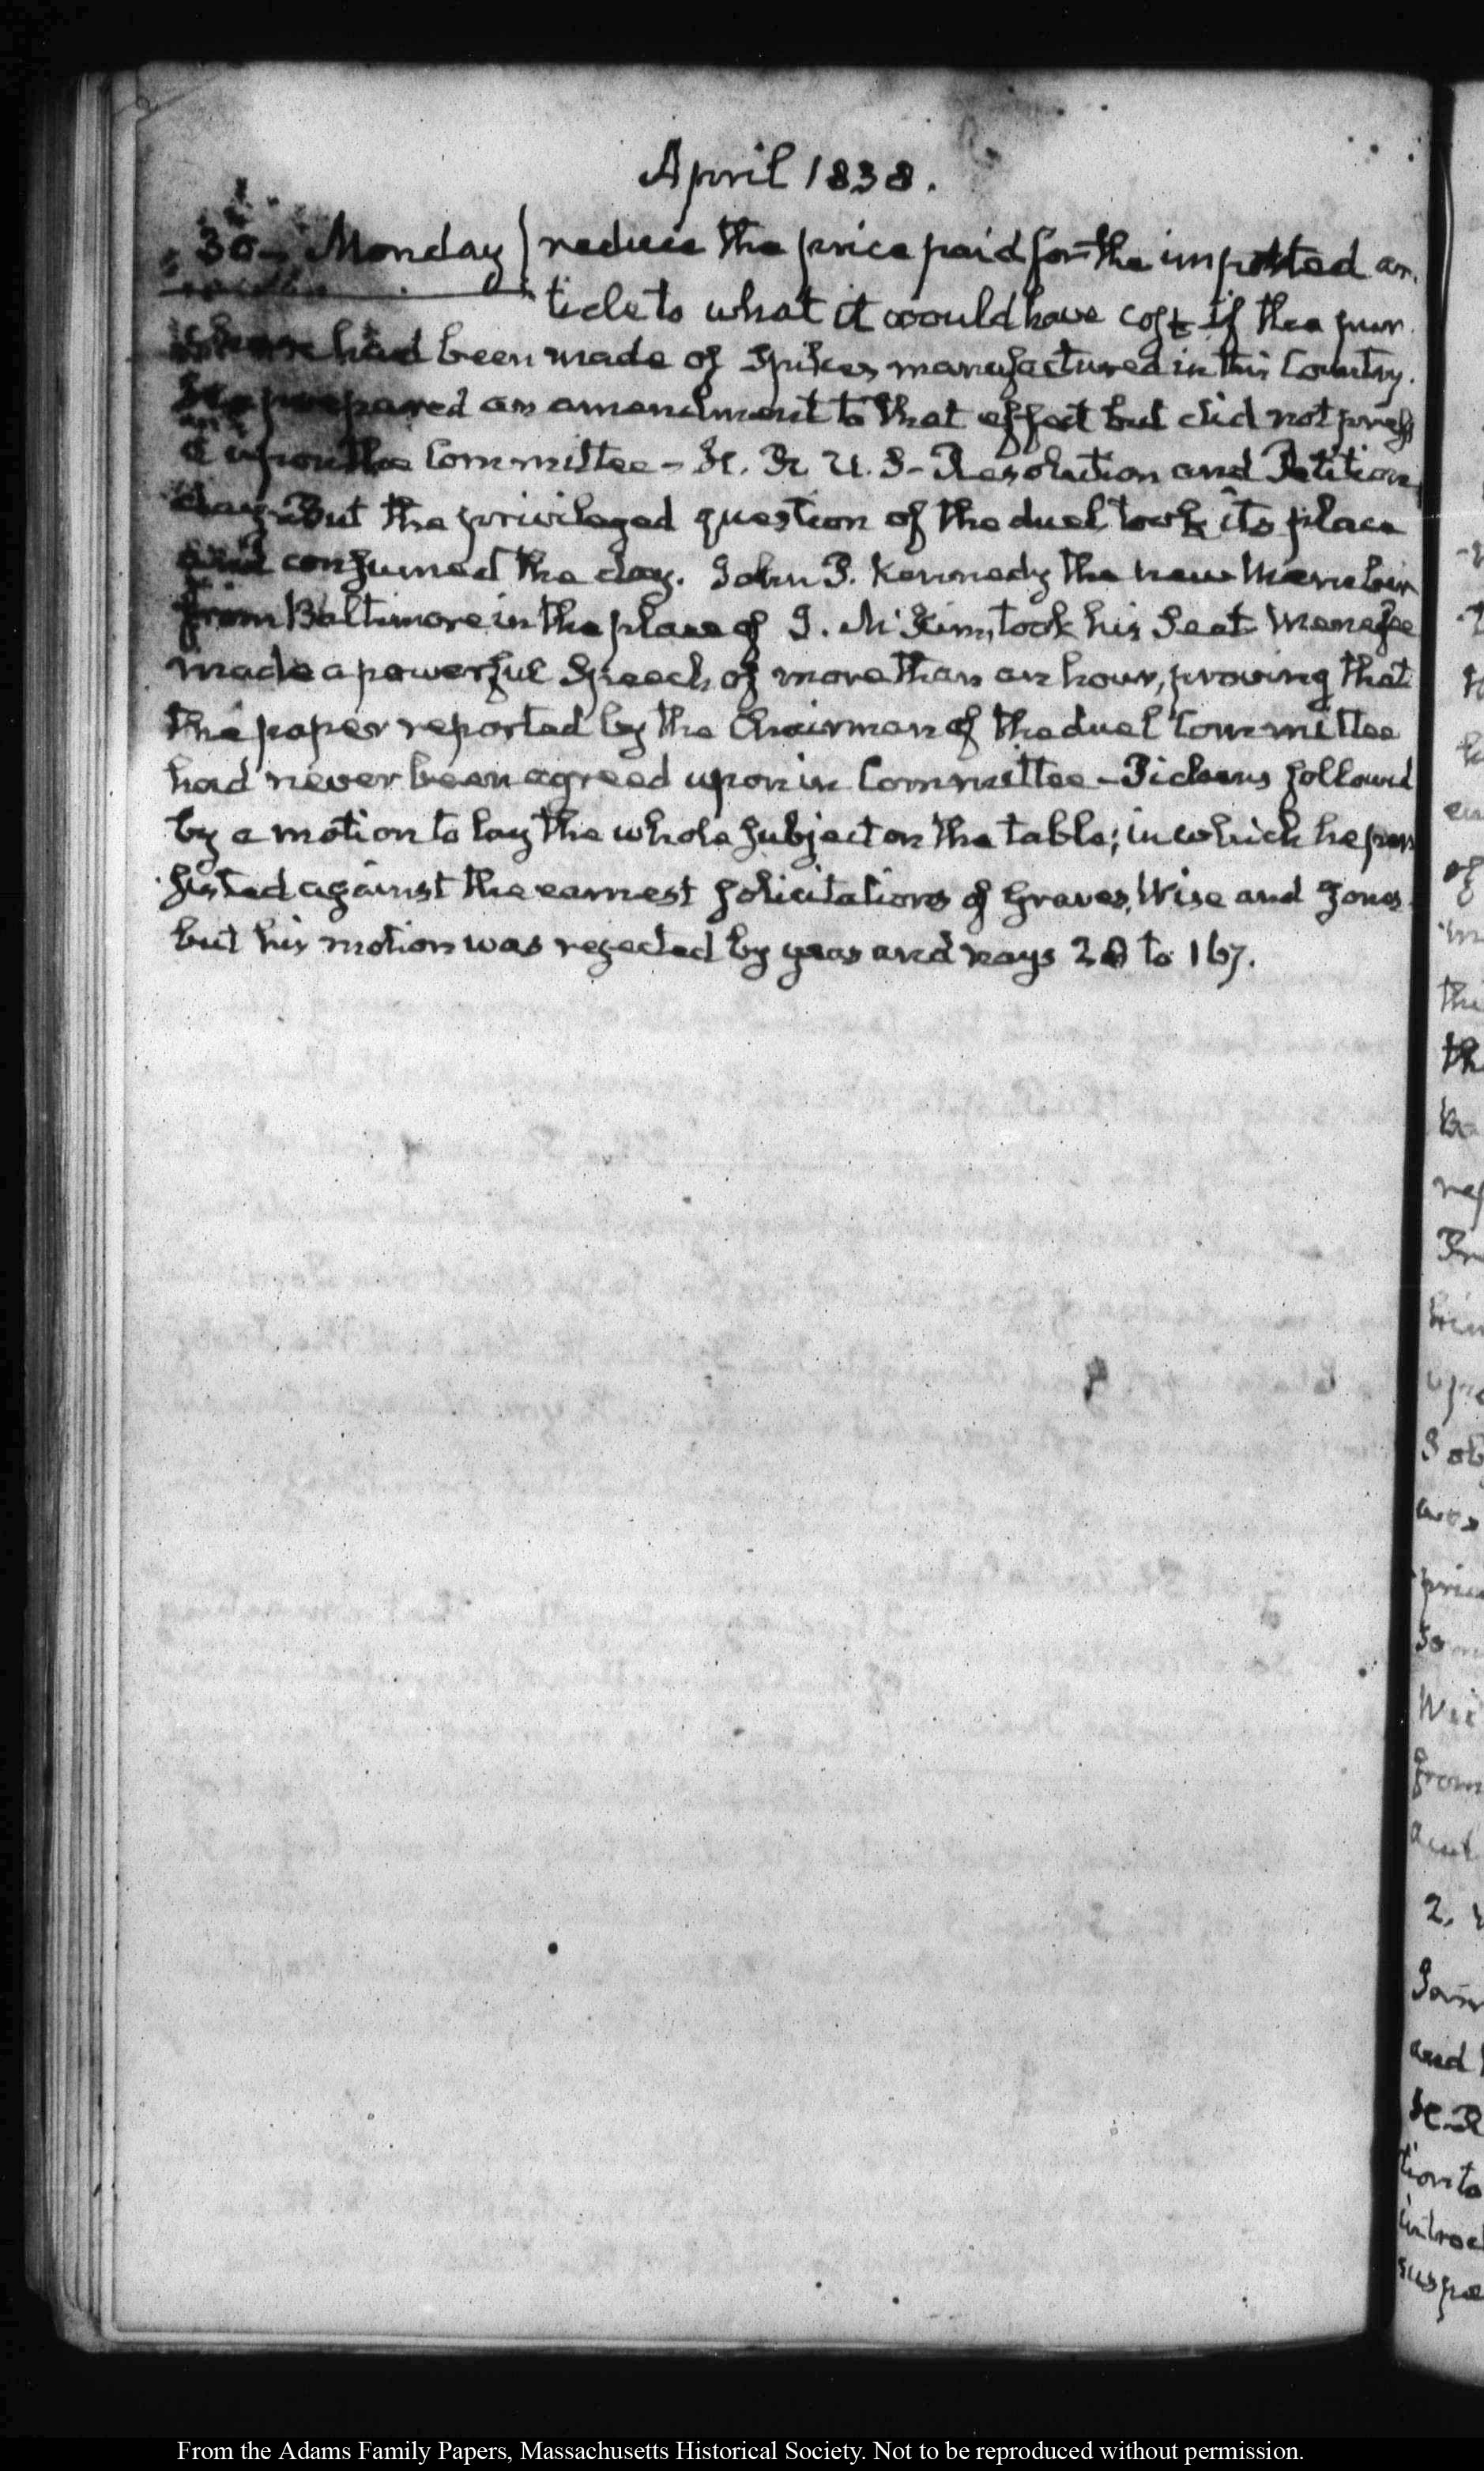 April 1838.
30. Monday reduce the price paid for the imported ar-
ticle to what it would have cost if the pur-
chase had been made of Spikes manufactured in this Country.
He prepared an amendment to that effect but did not press
it upon the Committee - H. R. U. S - Resolution and Petition
day - But the privileged question of the duel took its place
and consumed the day. John P. Kennedy the new Member
from Baltimore in the place of I. McKim, took his Seat. Menefee
made a powerful Speech of more than an hour, proving that
the paper reported by the Chairman of the duel Committee
had never been agreed upon in Committee - Pickens followed
by a motion to lay the whole subject on the table; in which he per-
sisted against the earnest solicitations of Graves, Wise and Jones
but his motion was rejected by yeas and nays to 167.
From the Adams Family Papers, Massachusetts Historical Society. Not to be reproduced without permission.